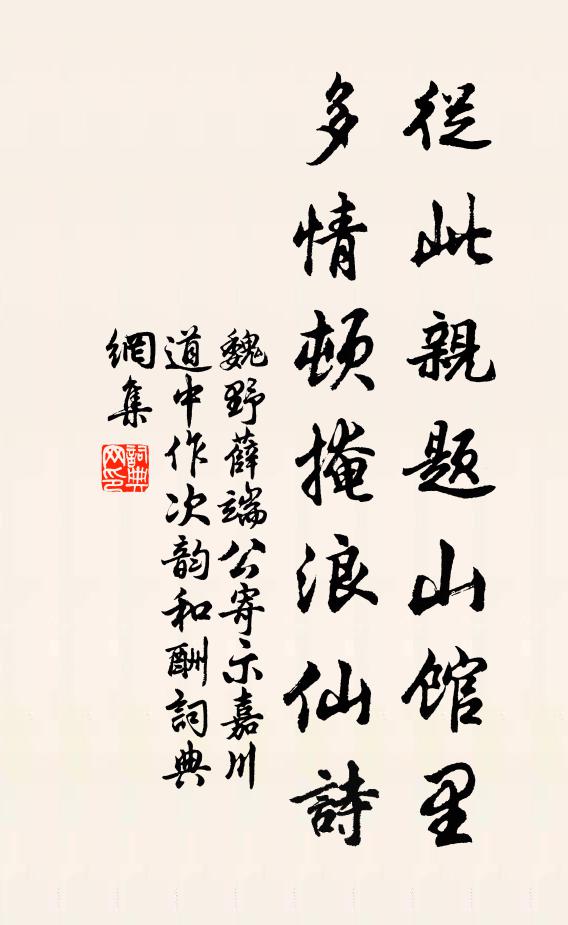 從此親題山館里
多情頓掩浪仙詩
魏野薛端公寄示嘉川
道中作次韵和酬詞典
網集
詞典
网印